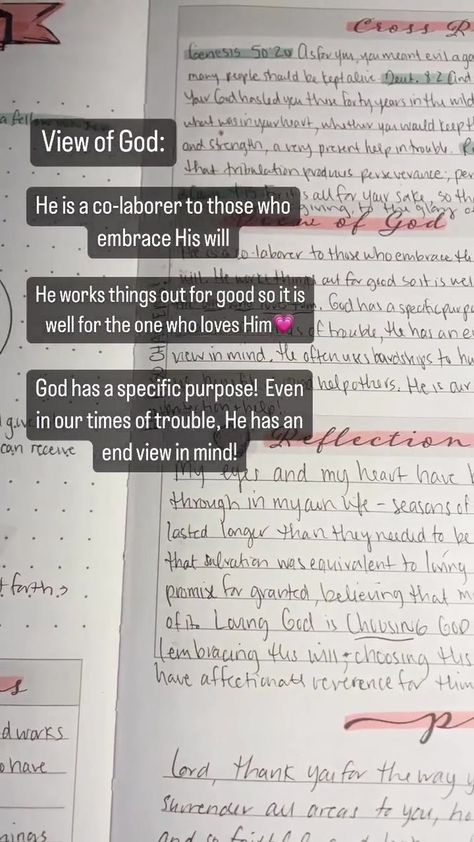 Cross R
Genesis 50:20 As for you, you meant evil aga
many people should be kept alive. Deut. 8:2 And
Your God has led you these forty years in the wild
what was in your heart, whether you would keep th
and strength, a very present help in trouble. R
that tribulation produces perseverance; per
all for your sake, so th
giving to the glory
a fellow
View of God:
He is a co-laborer to those who
embrace His will
He works things out for good so it is
well for the one who loves Him💗
God has a specific purpose! Even
in our times of trouble, He has an
end view in mind!
of God
co-laborer to those who embrace th
will. He works things out for good so it is wel
God has a specific purpo
of trouble, He has an e
view in mind. He often uses hardships to h
help others. He is our
give
can receive
Reflection
My eyes and my heart have
through in my own life - seasons of
lasted longer than they needed to be
that salvation was equivalent to loving
promise for granted, believing that m
of it. Loving God is CHOOSING GOD
(embracing His will; choosing His
have affectionate reverence for Him
forth?
s
d works
o have
nings
p
Lord, thank you for the way y
surrender all areas to you, ho